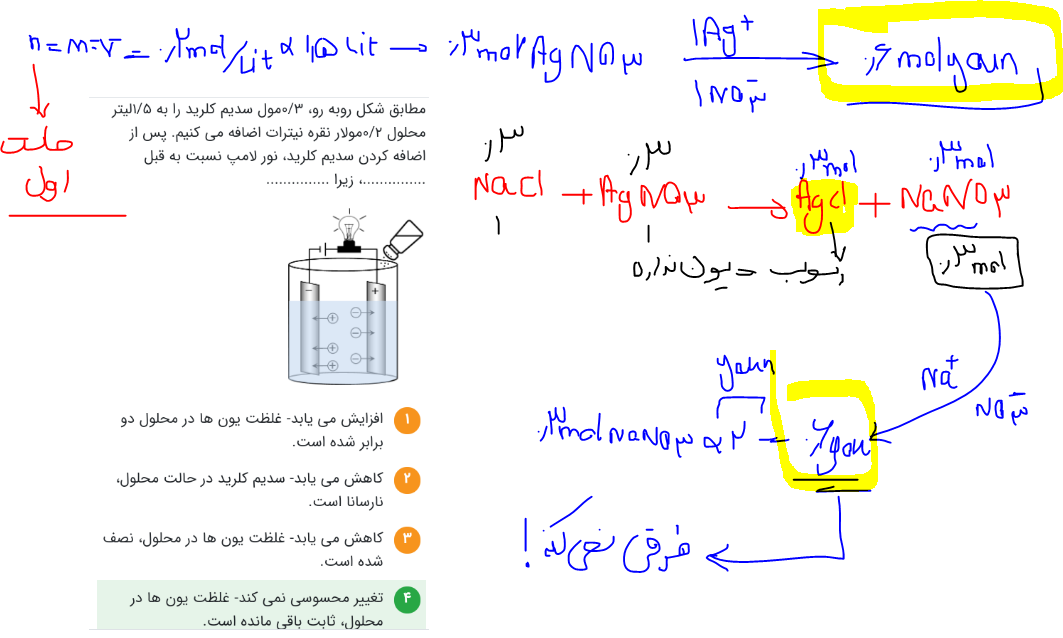 n = m = V = ۰٫۲ mol/Lit × ۱٫۵ Lit → ۰٫۳ mol AgNO۳
1Ag+
1NO۳-
۰٫۶ mol youn
حالت
اول
مطابق شکل روبه رو، ۰/۳مول سدیم کلرید را به ۱/۵لیتر
محلول ۰/۲مولار نقره نیترات اضافه می کنیم. پس از
اضافه کردن سدیم کلرید، نور لامپ نسبت به قبل
...............، زیرا ...............
۰٫۳ ۰٫۳ ۰٫۳mol ۰٫۳mol
NaCl + AgNO۳ → AgCl + NaNO۳
۱ ۱
رسوب = یون نداره
۰٫۳mol
Na+
NO۳-
youn
۰٫۳mol NaNO۳ × ۲ = ۰٫۶ youn
فرقی نمی کنه!
− +
۱ افزایش می یابد- غلظت یون ها در محلول دو
برابر شده است.
۲ کاهش می یابد- سدیم کلرید در حالت محلول،
نارسانا است.
۳ کاهش می یابد- غلظت یون ها در محلول، نصف
شده است.
۴ تغییر محسوسی نمی کند- غلظت یون ها در
محلول، ثابت باقی مانده است.